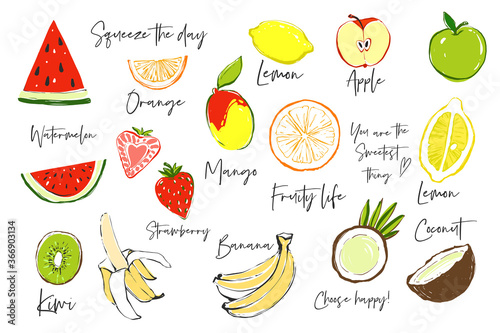 Squeeze the day
Orange
Lemon
Apple
Watermelon
Mango
You are the
Sweetest
thing
Lemon
Fruity life
Strawberry
Banana
Coconut
Kiwi
Choose happy!
Adobe Stock | #366903134